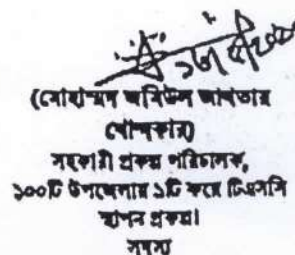 (মোহাম্মদ জমিউল আখতার
খোন্দকার)
সহকারী প্রকল্প পরিচালক,
১০০টি উপজেলায় ১টি করে টিএসসি
স্থাপন প্রকল্প।
সদস্য